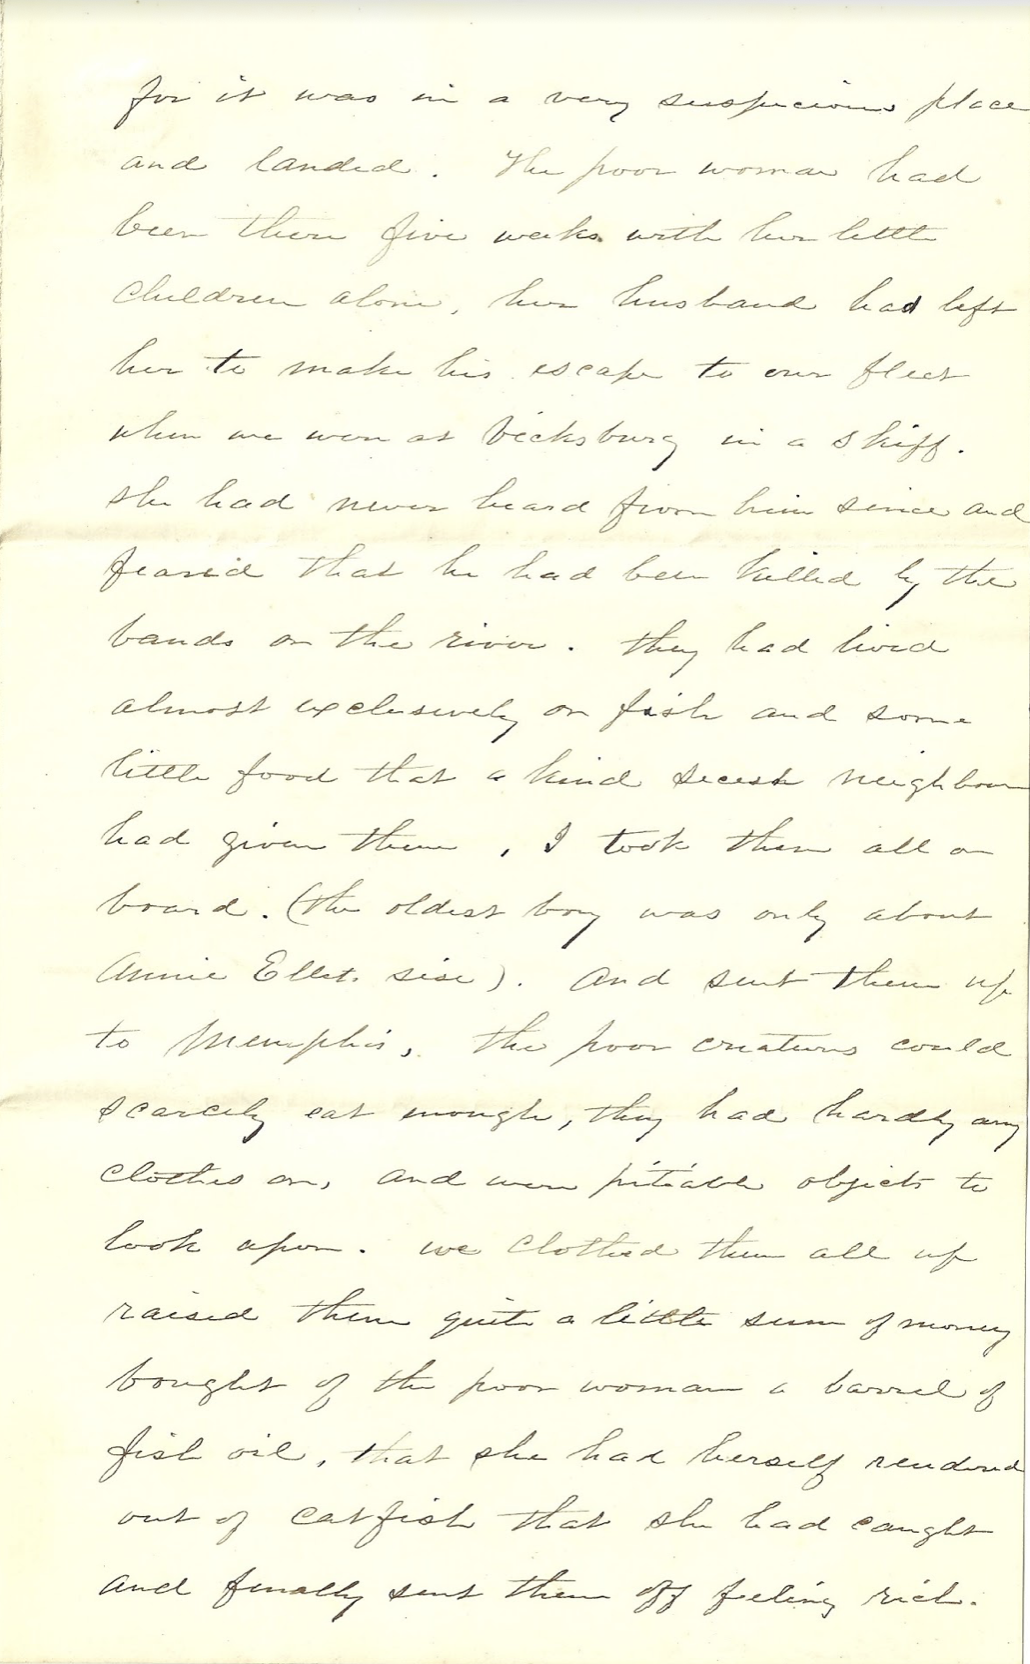 for it was in a very suspicious place
and landed. The poor woman had
been there five weeks with her little
children alone, her husband had left
her to make his escape to our fleet
when we were at Vicksburg in a skiff.
she had never heard from him since and
feared that he had been killed by the
bands on the river. they had lived
almost exclusively on fish and some
little food that a kind secesh neighbour
had given them, I took them all on
board. (the oldest boy was only about
Annie Ellets sise). And sent them up
to Memphis, the poor creatures could
scarcely eat enough, they had hardly any
clothes on, and were pitiable objects to
look upon. we clothed them all up
raised them quite a little sum of money
bought of the poor woman a barrel of
fish oil, that she had herself rendered
out of catfish that she had caught
and finally sent them off feeling rich.